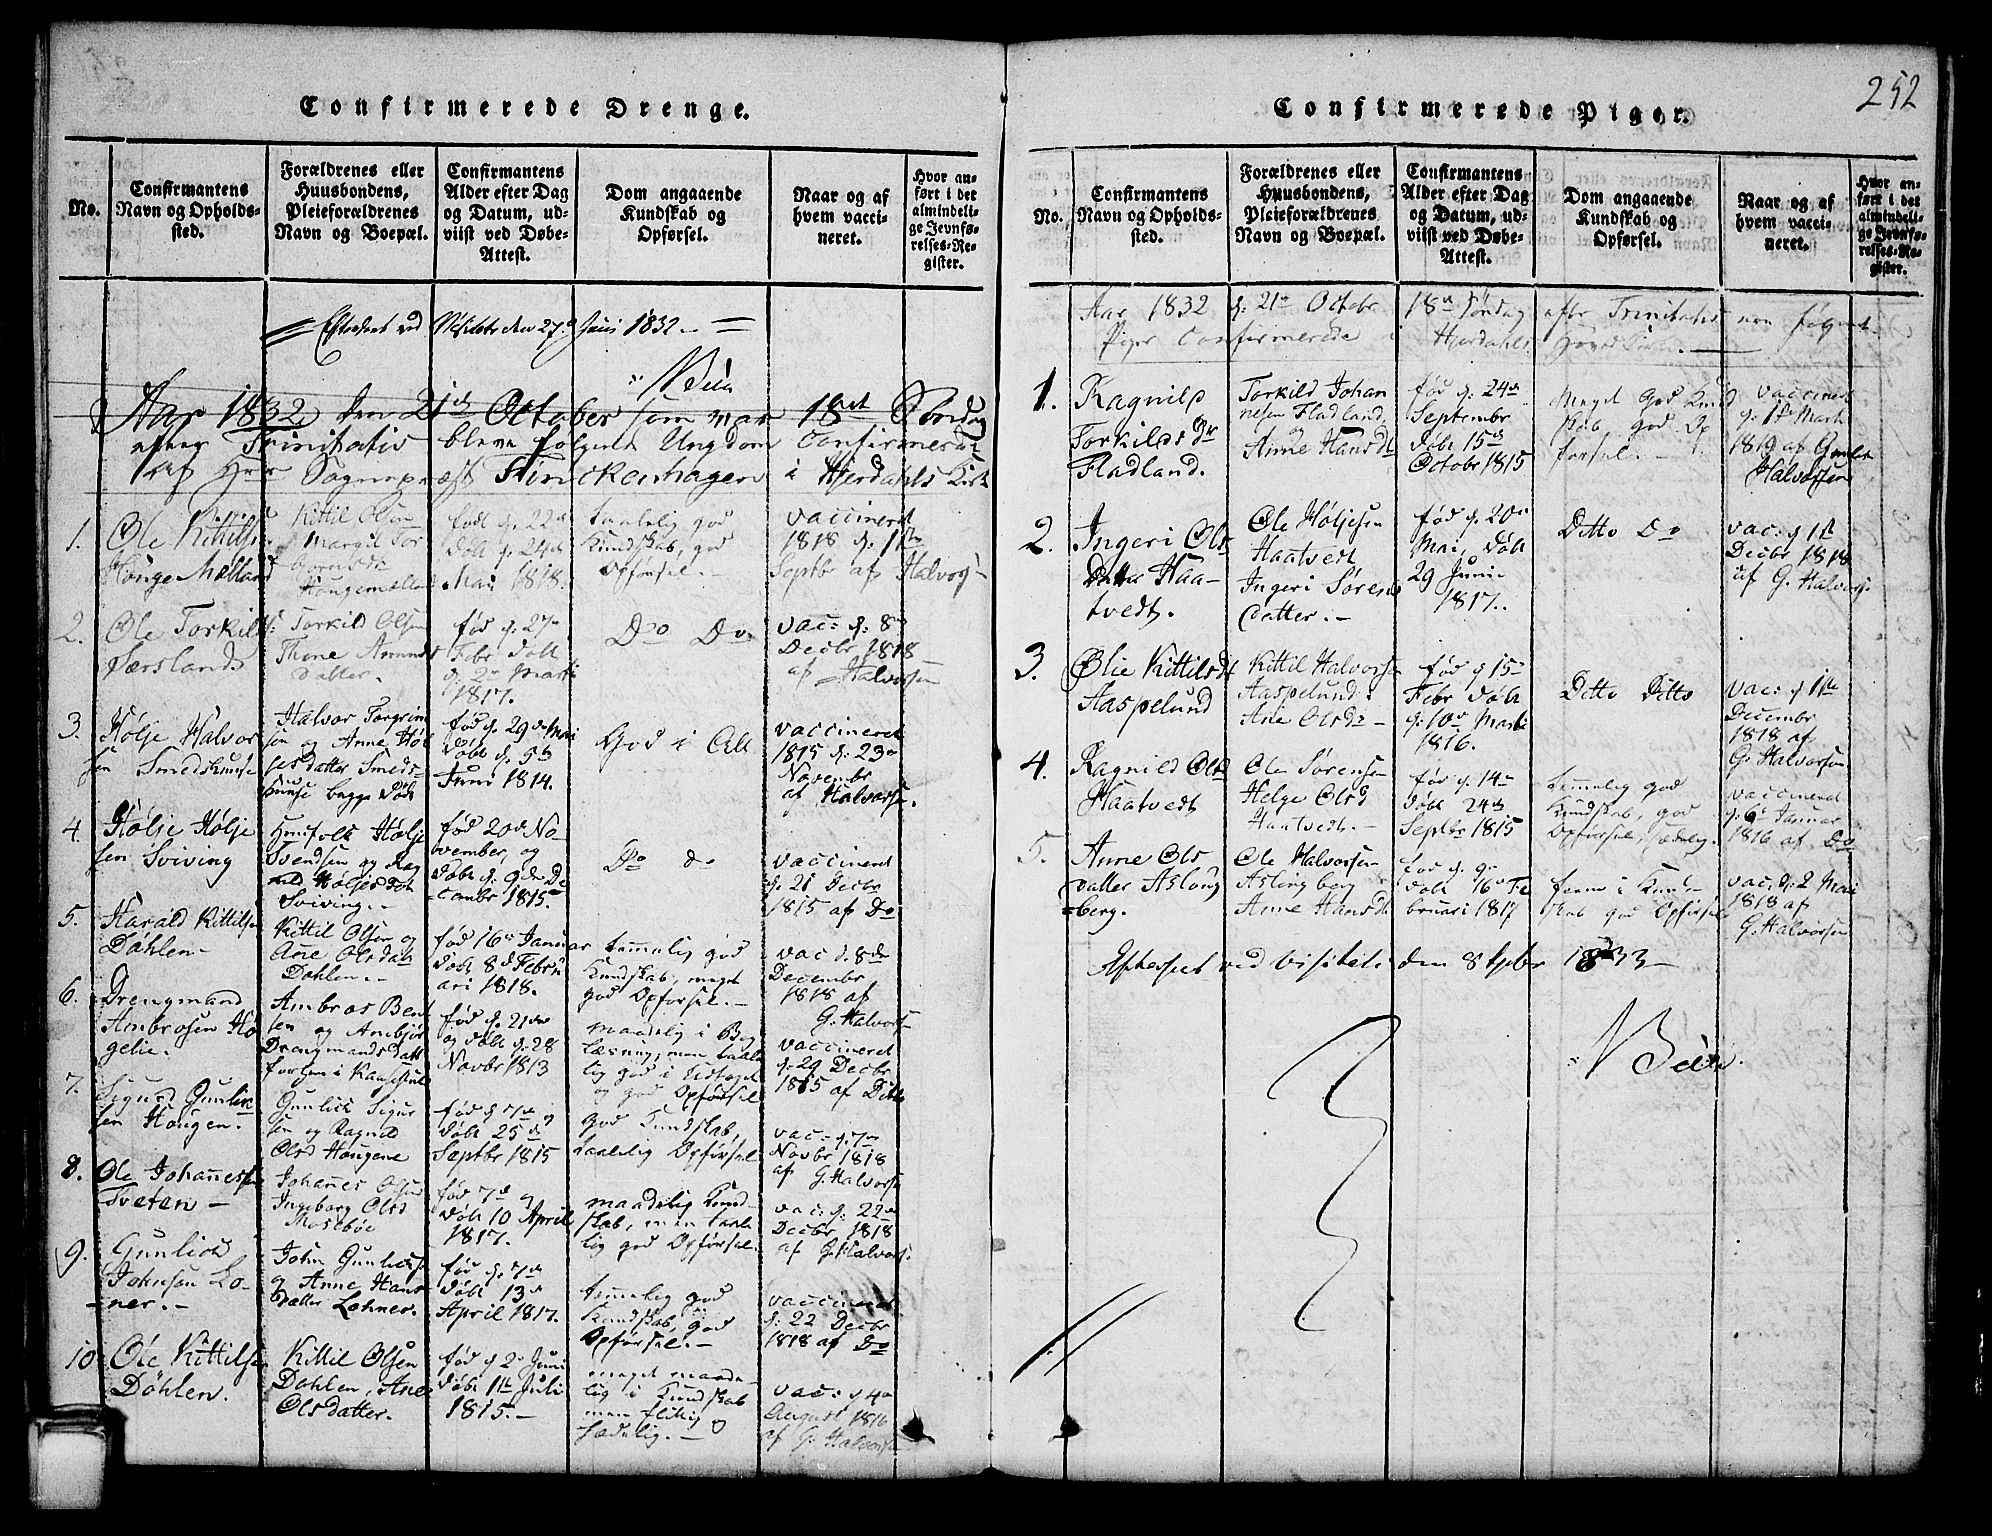 252
Confirmerede Drenge.
No.
Confirmantens Navn og Opholds-sted.
Forældrenes eller Huusbondens, Pleieforældrenes Navn og Boepæl.
Confirmantens Alder efter Dag og Datum, ud-viist ved Døbe-Attest.
Dom angaaende Kundskab og Opførsel.
Naar og af hvem vacci-neret.
Hvor an-ført i det almindeli-ge Jevnfø-relses-Re-gister.
Efterseet ved Visitats den 27 Juni 1832.
Aar 1832, den 21de October som var 18de Søndag
efter Trinitatis bleve følgende Ungdom Confirmerede
af Hrr Sognepræst Flinckenhagen i Hjerdahls Kirke
1.
Ole Kittils
Houge Mælland
Kittil Olsen
Margit Tor
Hougemælland
født d: 22de
døbt d: 24de
Mai 1818.
taalelig god
Kundskab, god
Opførsel.-
vaccineret
1818 d: 1ste
Septbr af Halvors
2.
Ole Torkilds
Særsland
Torkild Olsen
Thone Amunds
datter.
fød d: 27de
Febr døbt
d: 2de Marti
1817.
Do Do
vac: d: 8de
Decbr 1818
af Halvorsen
3.
Hølje Halvor
sen Smedshuuse
Halvor Torgrim
sen og Anne Høl
jesdatter Smeds-
huuse begge døde
fød d: 29de Mai
døbt d: 5te
Juni 1814.
God i Alt
vaccineret
1815 d: 23de
Novembr
af Halvorsen.
4.
Hølje Hølje
sen Sviving
Hølje
Svendsen og Rag
nild Høljesdat
Sviving.-
fød 20de No-
vember, og
døbt d: 9de De
cembr 1815.
Do do
vaccineret
d. 21 Decbr
1815 af Do
5.
Harald Kittilsen
Dahlen-
Kittil Olsen og
Ane Olsdatt
Dahlen.-
fød 16de Januar
døbt 8de Febru
ari 1818.
temmelig god
Kundskab, meget
god Opførsel.-
vac d. 8de
Decembr
1818 af
G. Halvors
6.
Drengmand
Ambrosen Ho
gelie.
Ambros Ben
sen og Anbjør
Drengmandsdatt
fød d: 21de
og døbt d: 28
Novbr 1813
maadelig i Bog
læsning, men taale
lig god i Udtoget
og god Opførsel
vaccineret
d: 29 Decbr
1815 af Ditto
7.
Sigurd Gunlik
sen Hougen.
Gunlich Sigur
sen og Ragnild
Olsd Hougene
fød d 7de og
døbt 25de
Septbr 1815
god Kundskab,
taalelig Opførsel
vac: d. 7de
Novbr 1818
af G. Halvorsen
8.
Ole Johannessen
Tveten -
Johannes Olsen
Ingeborg Olsd
Mosebøe
fød 7de og
døbt 10 April
1817.
maadelig Kund
skab, men taale
lig god Opførsel.
vac: d. 22de
Decbr 1818
af G. Halvors.
9.
Gunlich
Johnsen Lo-
ner.-
John Gunlichs
og Anne Hans
datter Lohner.
fød d. 7de
døbt 13de
April 1817.
temmelig god
Kundskab, god
Opførsel.-
vaccineret
d: 22 Decbr
1818 af Do
10
Ole Kittilsen
Døhlen.
Kittil Olsen
Dahlen, Ane
Olsdatter.
fød d 2de Juni
døbt 11te Juli
1815.-
meget maade-
lig i Kundskab
men flittig og
sædelig.-
vac: d 4de
August 1816
af G. Halvorsen
Confirmerede Piger.
No.
Confirmantens Navn og Opholds-sted.
Forældrenes eller Huusbondens, Pleieforældrenes Navn og Boepæl.
Confirmantens Alder efter Dag og Datum, ud-viist ved Døbe-Attest.
Dom angaaende Kundskab og Opførsel.
Naar og af hvem vacci-neret.
Hvor an-ført i det almindeli-ge Jevnfø-relses-Re-gister.
Aar 1832 d. 21de Octobr 18de Søndag efter Trinitatis
Piger Confirmerede i Hjerdahls Hoved Kirke.
1.
Ragnild
Torkildsdr
Fladland.
Torkild Johan
nesen Fladland,
og
Anne Hansdt
fød d. 24de
Septembr
døbt 15de
Octobr 1815
Meget god Kund
skab, god Op
førsel.-
vaccineret
d. 1ste Marti
1819 af Gunlek
Halvorsen
2.
Ingeri Ols
Datter Haa-
tvedt.
Ole Høljesen
Haatvedt
Ingeri Sørens
datter.-
fød d. 20de
Mai, døbt
29 Juni
1817.
Ditto Do
vac: d 1ste
Decbr 1818
af G. Halvors.
3.
Ølie Kittilsdt
Aaspelund
Kittil Halvorsen
Aaspelund
Ane Olsdr -
fød d 15de
Febr døbt
d: 10de Marti
1816.
Ditto Ditto
vac: d 11te
Decembr
1818 af
G. Halvorsen
4.
Ragnild Olsd
Haatvedt
Ole Sørensen
Helge Olsd
Haatvedt.-
fød d. 14de
døbt 24de
Septbr 1815
temmelig god
Kundskab, god
Opførsel, sædelig.
vaccineret
d. 6te Januar
1816 af Do
5.
Anne Ols
datter Aslong
berg.
Ole Halvorsen
Aslongberg
Anne Hansdt
fød d. 9de
døbt 16de Fe
bruari 1817
skab god Opførsel
vac. d. 2 Mai
1818 af
G. Halvorsen
Efterseet ved Visitats den 8 Septbr 1833-